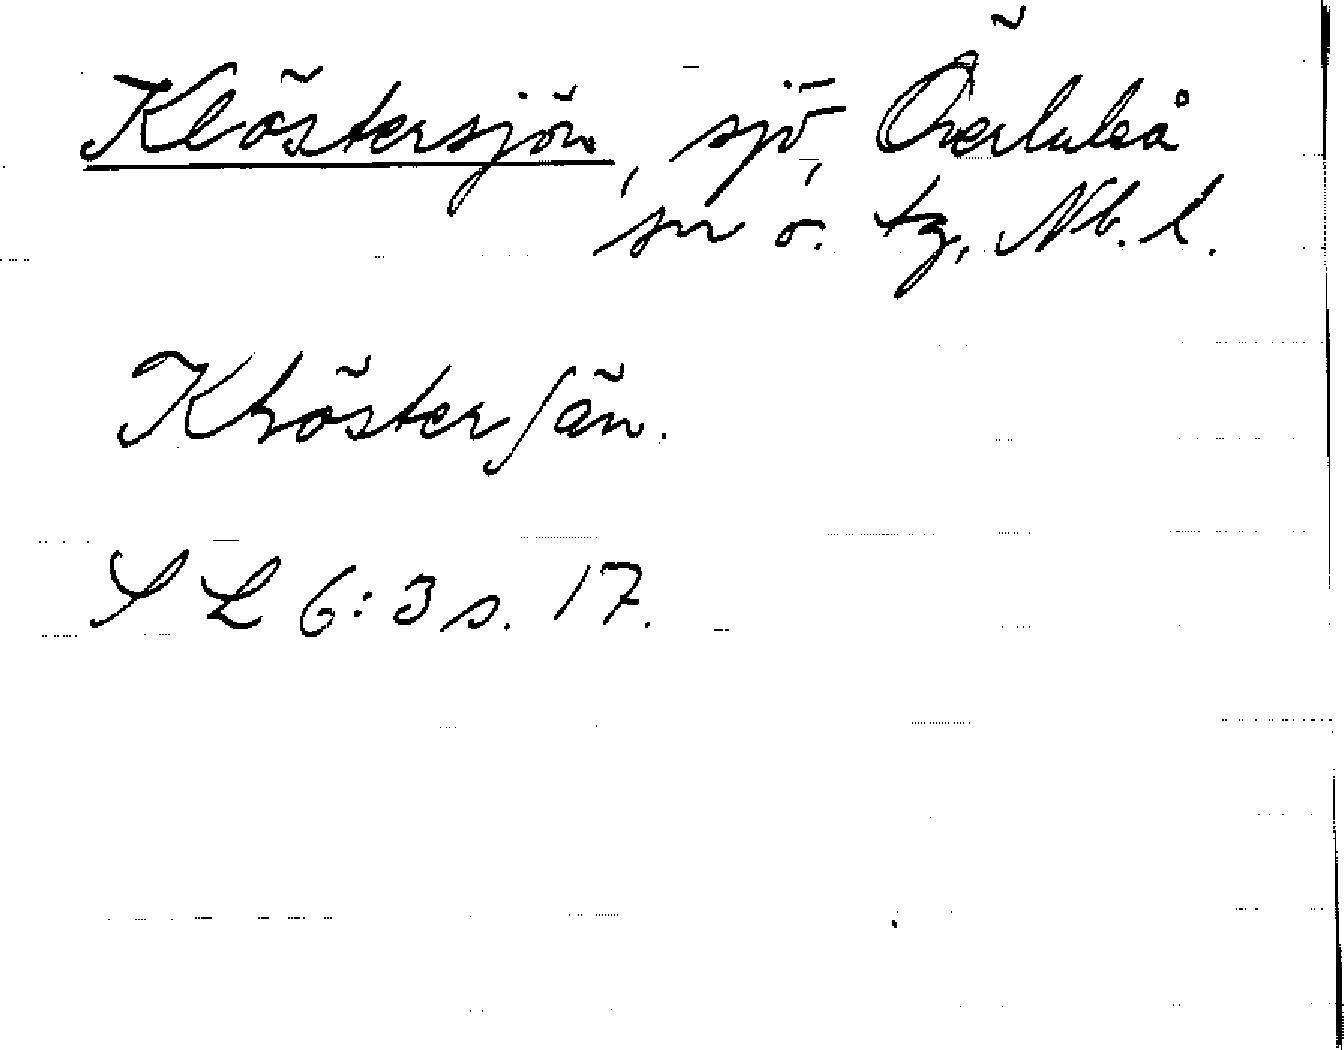 Klöstersjön, sjö, Överluleå
sn o. tg, Nb. l.
Klöstersjön.
S L 6:3 s. 17.